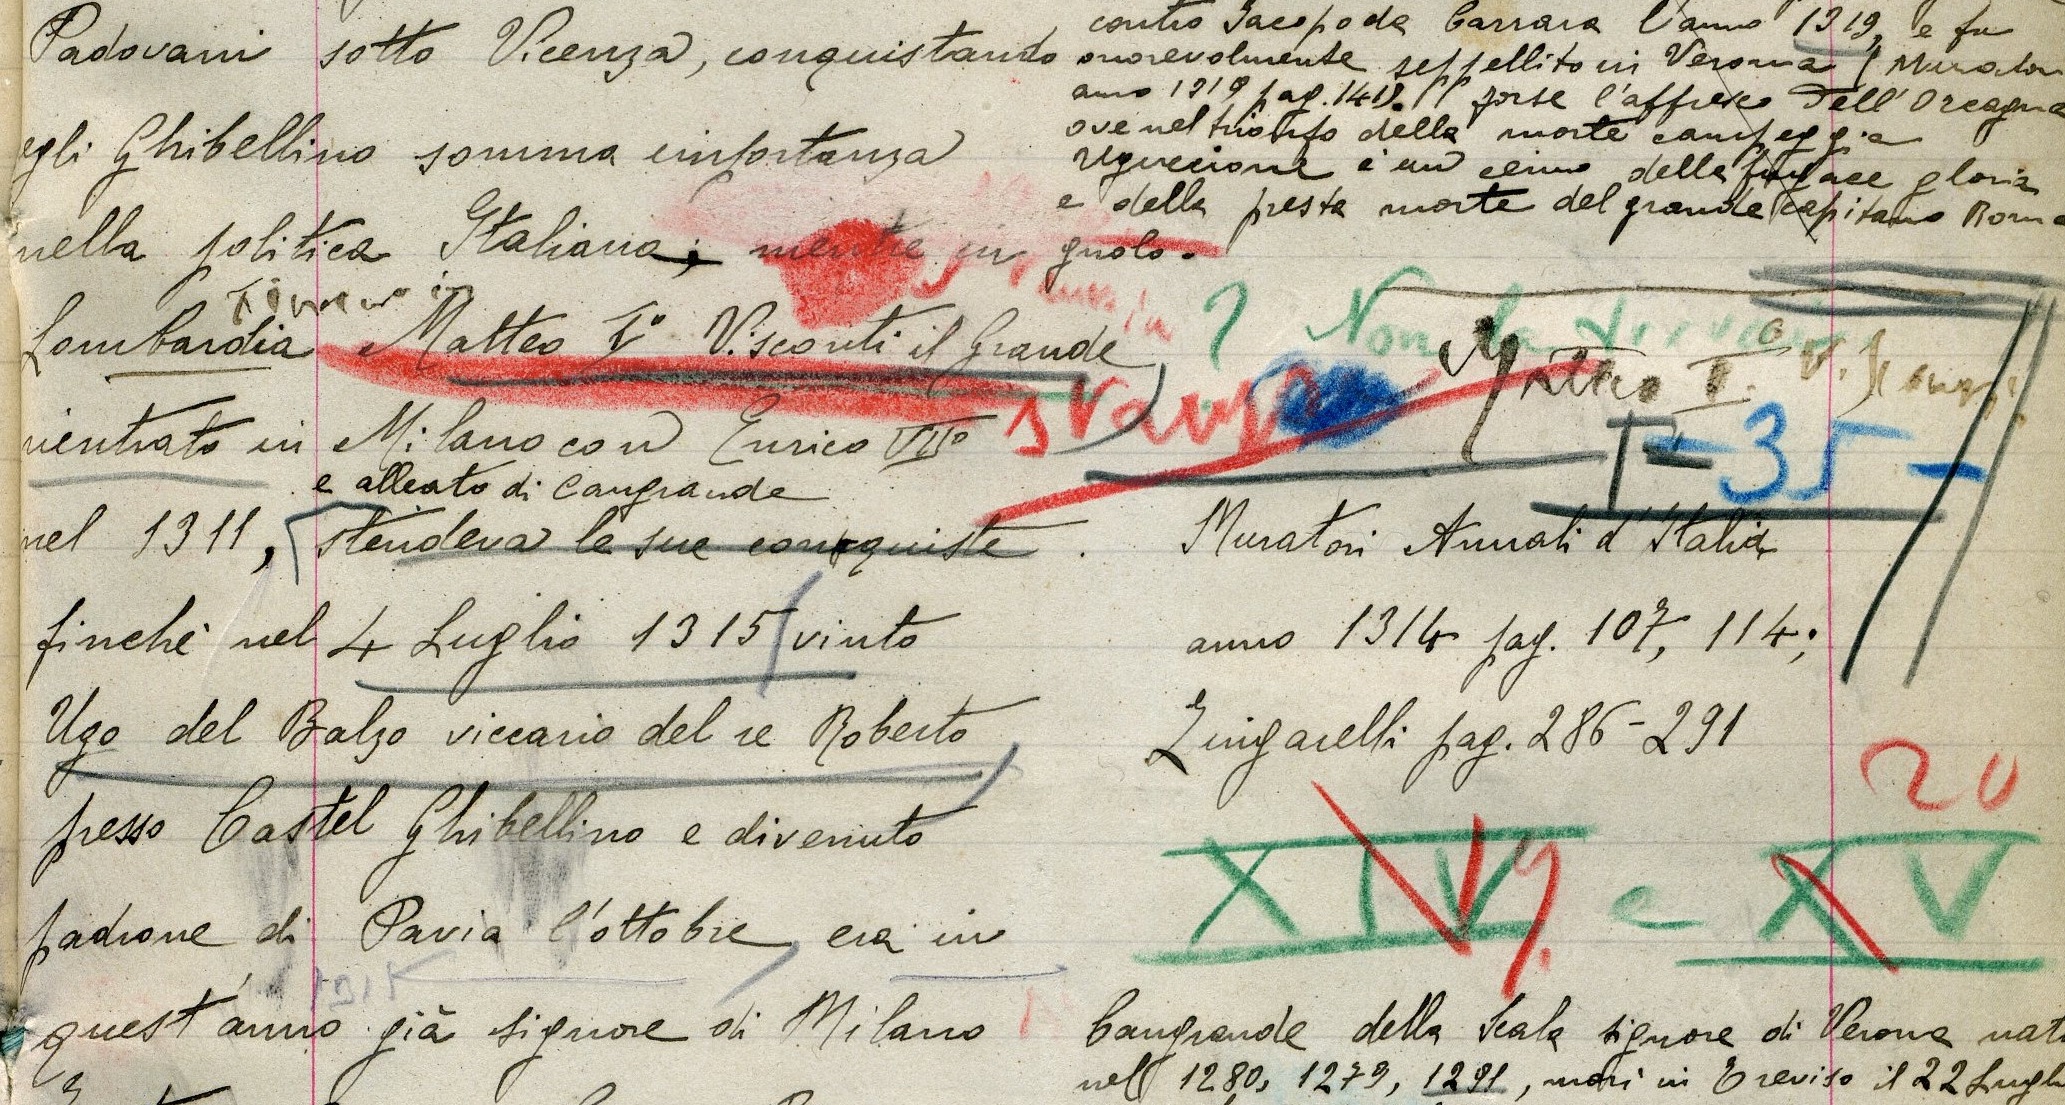 Padovani sotto Vicenza, conquistando
egli Ghibellino somma importanza
nella politica Italiana; mentre in
Lombardia Matteo I° Visconti il Grande
rientrato in Milano con Enrico VII°
e alleato di Cangrande
nel 1311, stendeva le sue conquiste
finchè nel 4 Luglio 1315 vinto
Ugo del Balzo viccario del re Roberto
presso Castel Ghibellino e divenuto
padrone di Pavia l'ottobre, era in
1315
quest'anno già signore di Milano
contro Jacopo da Carrara l'anno 1319, e fu
onorevolmente seppellito in Verona (Muratori
anno 1319 pag. 141). forse l'affresco dell'Orcagna
ove nel trionfo della morte campeggia
Uguccione è un cenno della fugace gloria
e della presta morte del grande capitano Roma
gnolo.
? Non la
Matteo I° Visconti
I = 35 -
Muratori Annali d'Italia
anno 1314 pag. 107, 114;
Zingarelli pag. 286-291
20
XIV e XV
Cangrande della Scala signore di Verona nato
nel 1280, 1279, 1291, morì in Treviso il 22 Luglio